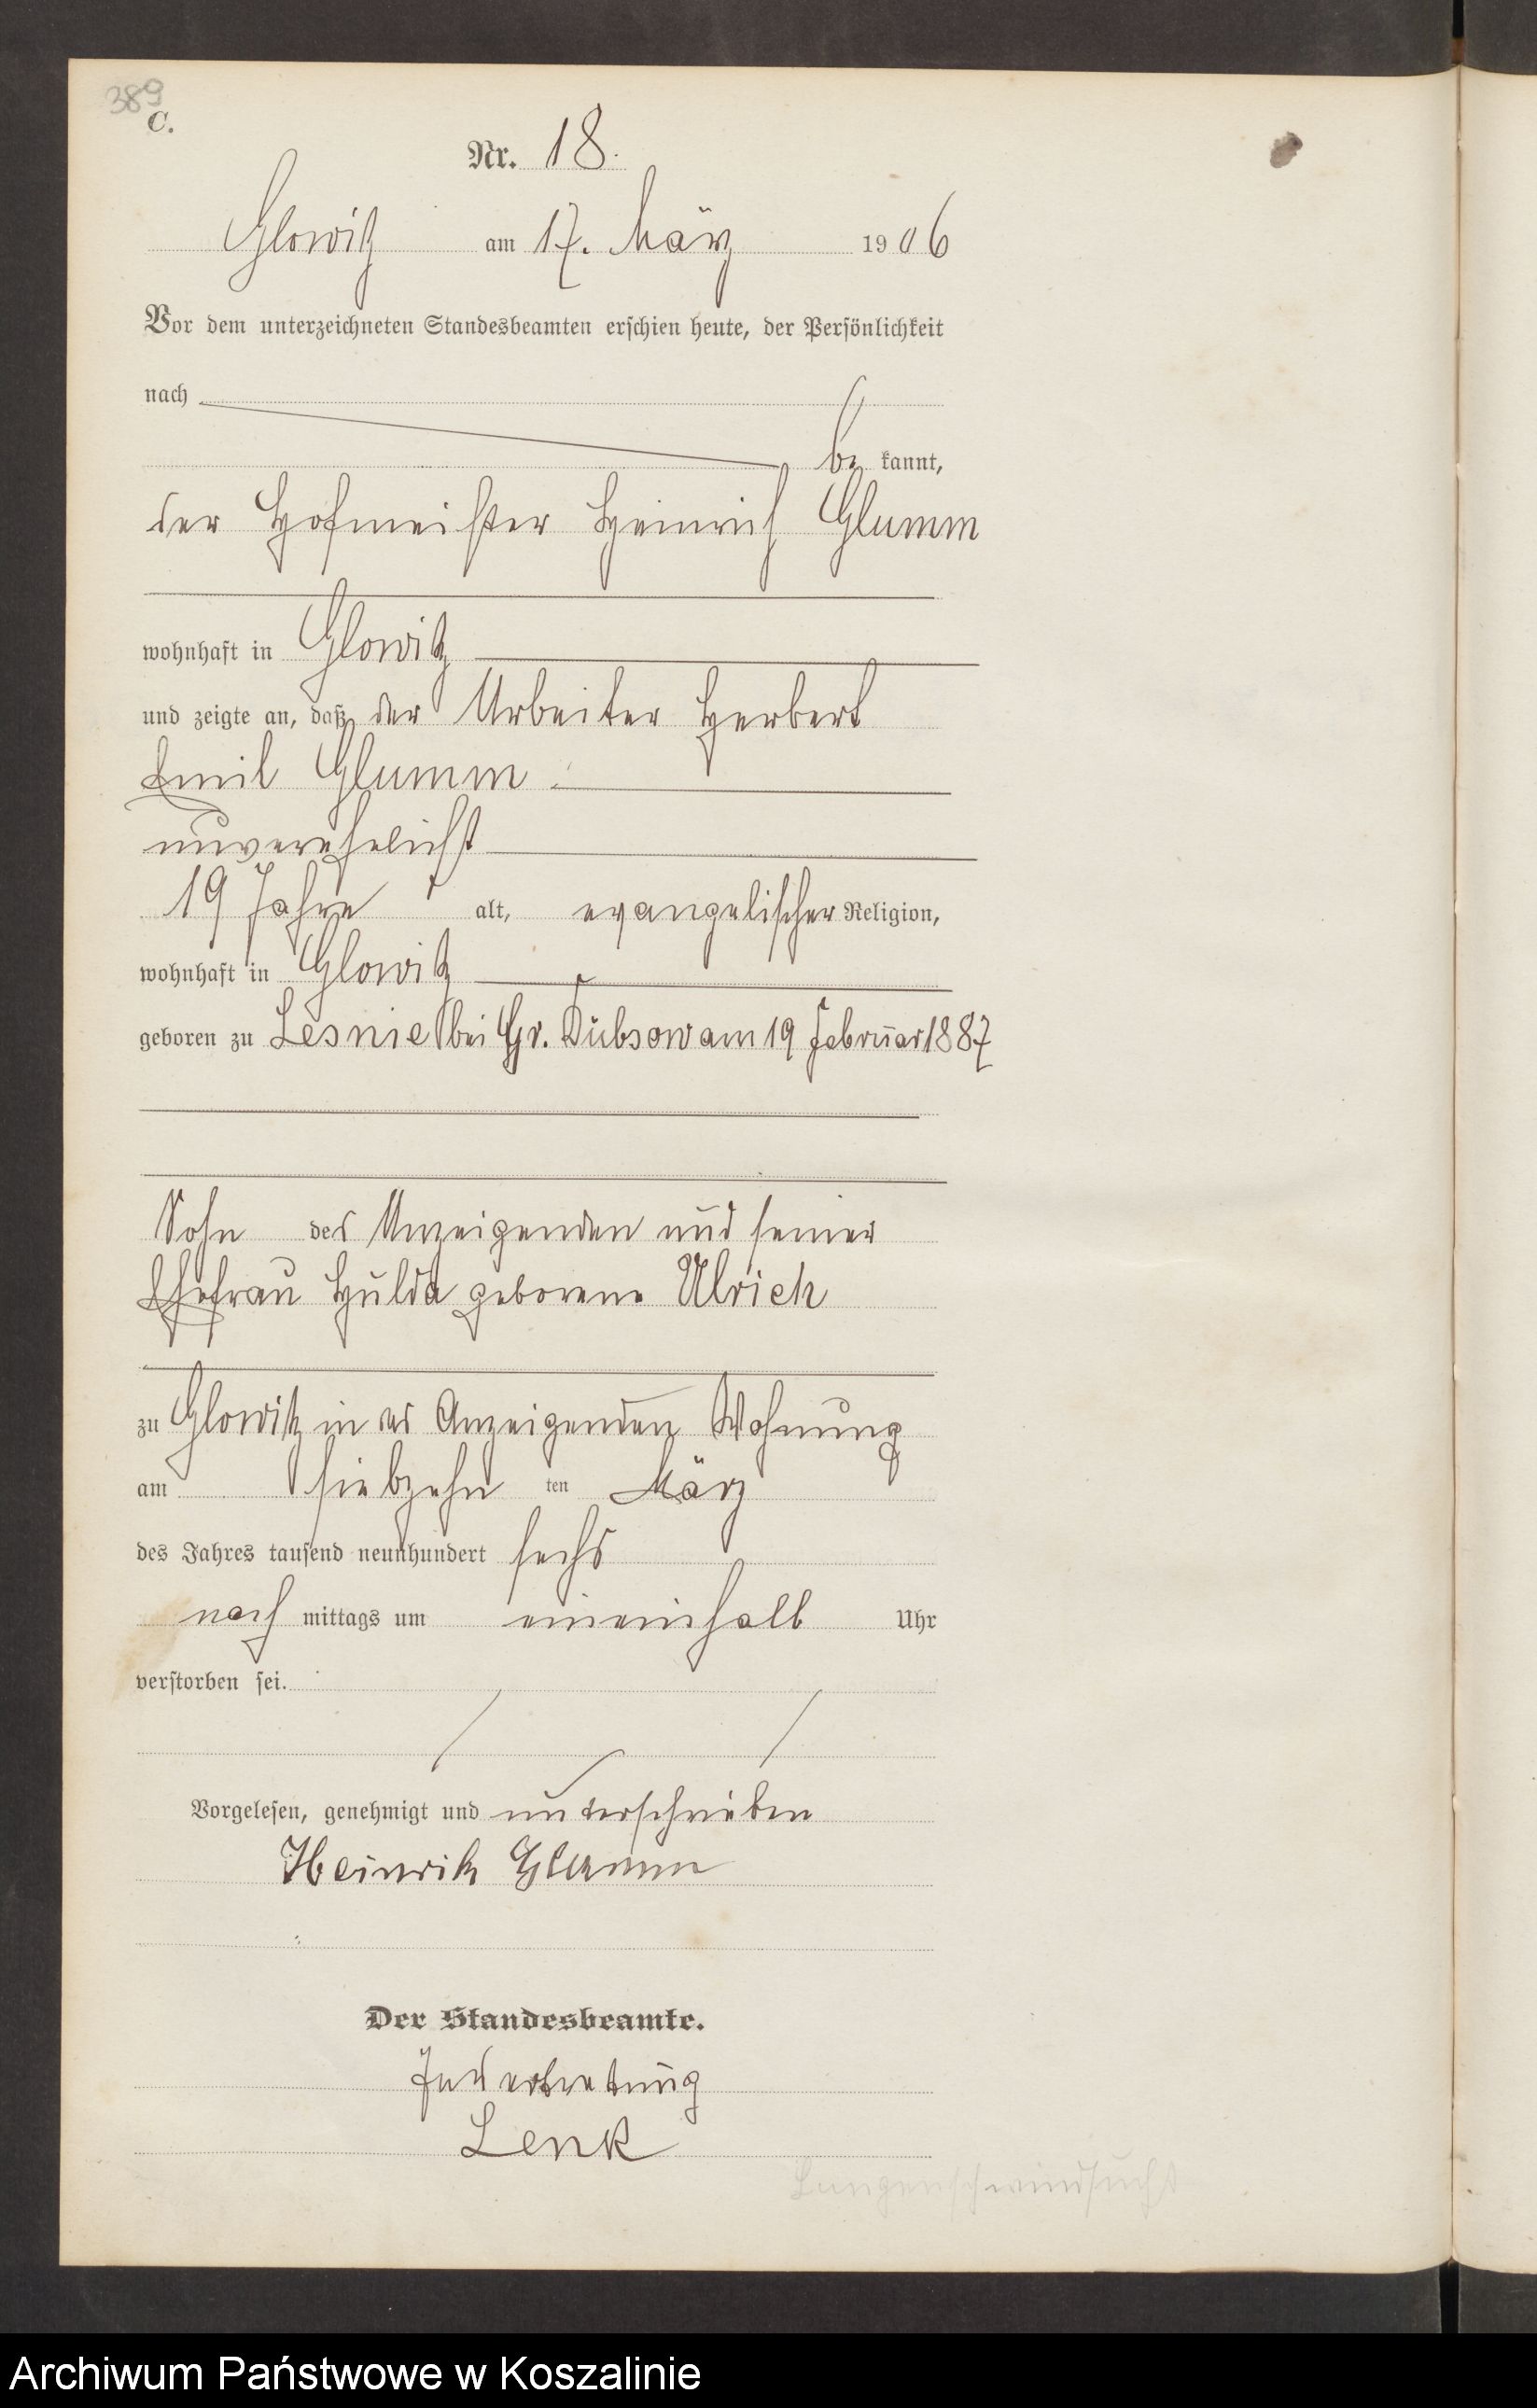 389
C.
Nr. 18.
Glowitz am 17. März 1906
Vor dem unterzeichneten Standesbeamten erschien heute, der Persönlichkeit
nach
be kannt,
der Hofmeister Heinrich Glumm
wohnhaft in Glowitz
und zeigte an, daß der Arbeiter Herbert
Emil Glumm
unverehelicht
19 Jahre alt, evangelischer Religion,
wohnhaft in Glowitz
geboren zu Lesnie bei Gr. Dübsow am 19 Februar 1887
Sohn des Anzeigenden und seiner
Ehefrau Hulda geborene Ulrich
zu Glowitz in des Anzeigenden Wohnung
am siebzehn ten März
des Jahres tausend neunhundert sechs
nach mittags um eineinhalb Uhr
verstorben sei.
Vorgelesen, genehmigt und unterschrieben
Heinrich Glumm
Der Standesbeamte.
In Vertretung
Lenk
Lungenschwindsucht
Archiwum Państwowe w Koszalinie